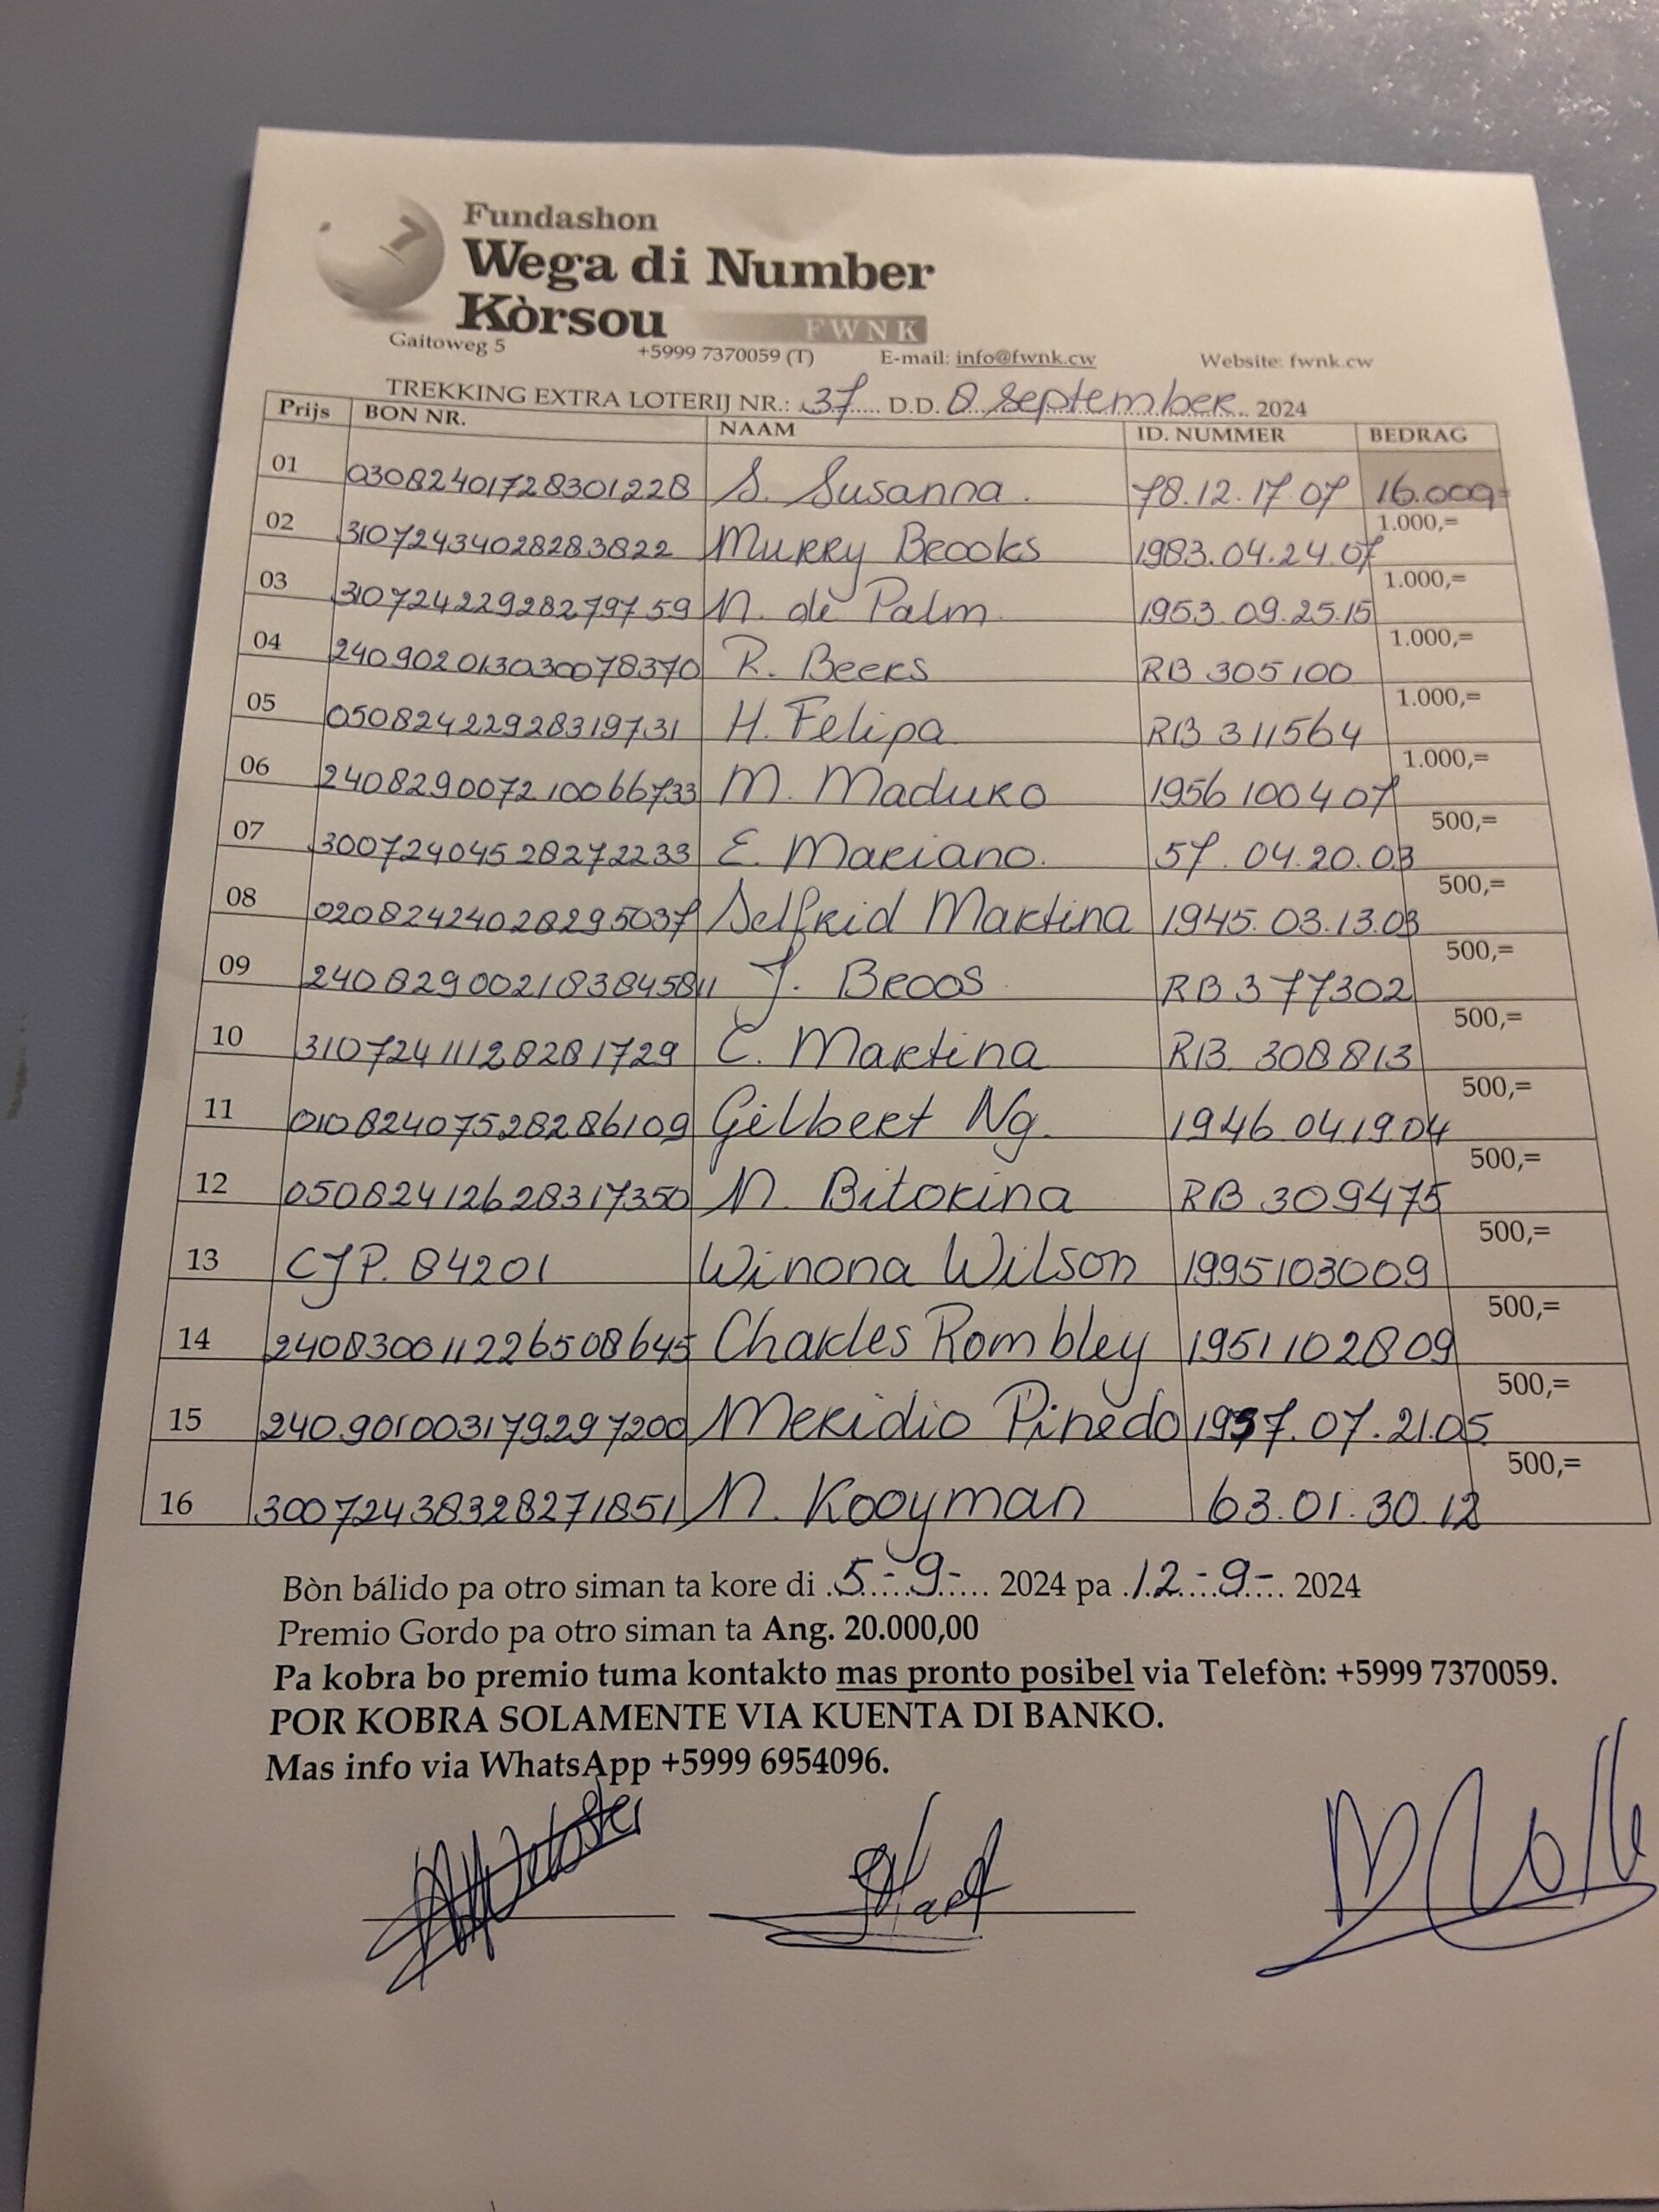 Fundashon
Wega di Number
Kòrsou FWNK
Gaitoweg 5 +5999 7370059 (T) E-mail: info@fwnk.cw Website: fwnk.cw
TREKKING EXTRA LOTERIJ NR.: 37 D.D. 8 September 2024
Prijs BON NR. NAAM ID. NUMMER BEDRAG
01 03082401728301228 S. Susanna. 78.12.17.07 16.000,=
02 31072434028283822 Murry Brooks 1983.04.24.07 1.000,=
03 310724229282797 59 N. de Palm 1953.09.25.15 1.000,=
04 240902013030078370 R. Beers RB 305100 1.000,=
05 05082422928319731 H. Felipa RB 311564 1.000,=
06 240829007210066733 M. Maduro 1956100407 1.000,=
07 30072404528272233 E. Mariano. 57.04.20.03 500,=
08 02082424028295037 Selfrid Martina 1945.03.13.03 500,=
09 240829002183845811 J. Broos RB 377302 500,=
10 31072411128281729 C. Martina RB 308813 500,=
11 01082407528286109 Gilbert Ng. 1946041904 500,=
12 05082412628317350 N. Bitorina RB 309475 500,=
13 CJP. 84201 Winona Wilson 1995103009 500,=
14 240830011226508645 Charles Rombley 1951102809 500,=
15 240901003179297200 Meridio Pinedo 1957.07.21.05 500,=
16 30072438328271851 N. Kooyman 63.01.30.12 500,=
Bòn bálido pa otro siman ta kore di 5-9- 2024 pa 12-9- 2024
Premio Gordo pa otro siman ta Ang. 20.000,00
Pa kobra bo premio tuma kontakto mas pronto posibel via Telefòn: +5999 7370059.
POR KOBRA SOLAMENTE VIA KUENTA DI BANKO.
Mas info via WhatsApp +5999 6954096.